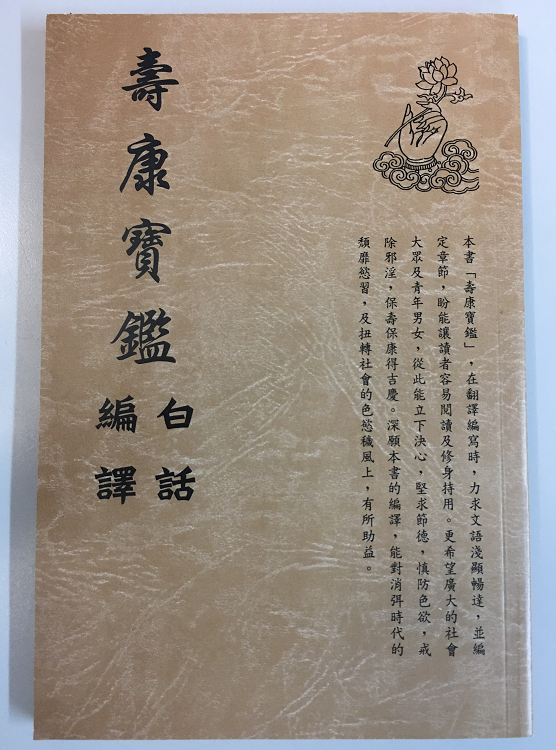 壽康寶鑑
白話
編譯
本書「壽康寶鑑」，在翻譯編寫時，力求文語淺顯暢達，並編
定章節，盼能讓讀者容易閱讀及修身持用。更希望廣大的社會
大眾及青年男女，從此能立下決心，堅求節德，慎防色欲，戒
除邪淫，保壽保康得吉慶。深願本書的編譯，能對消弭時代的
頹靡慾習，及扭轉社會的色慾穢風上，有所助益。